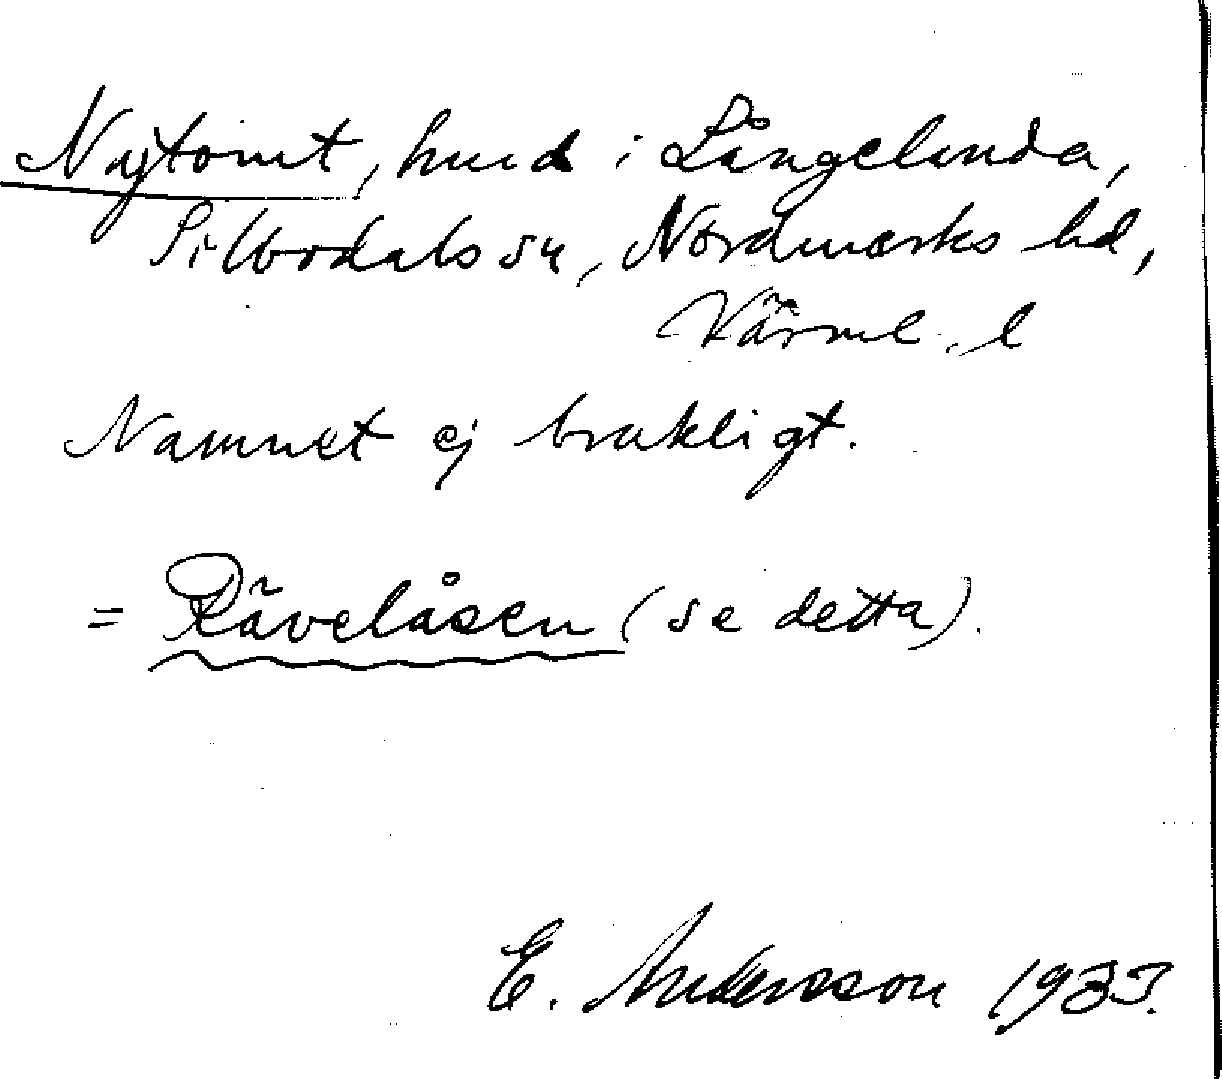 Nytomt, hmd i Långelanda,
Silbodals sn, Nordmarks hd,
Värml. l
Namnet ej brukligt.
= Räveläsen (se detta).
E. Andersson 1933.